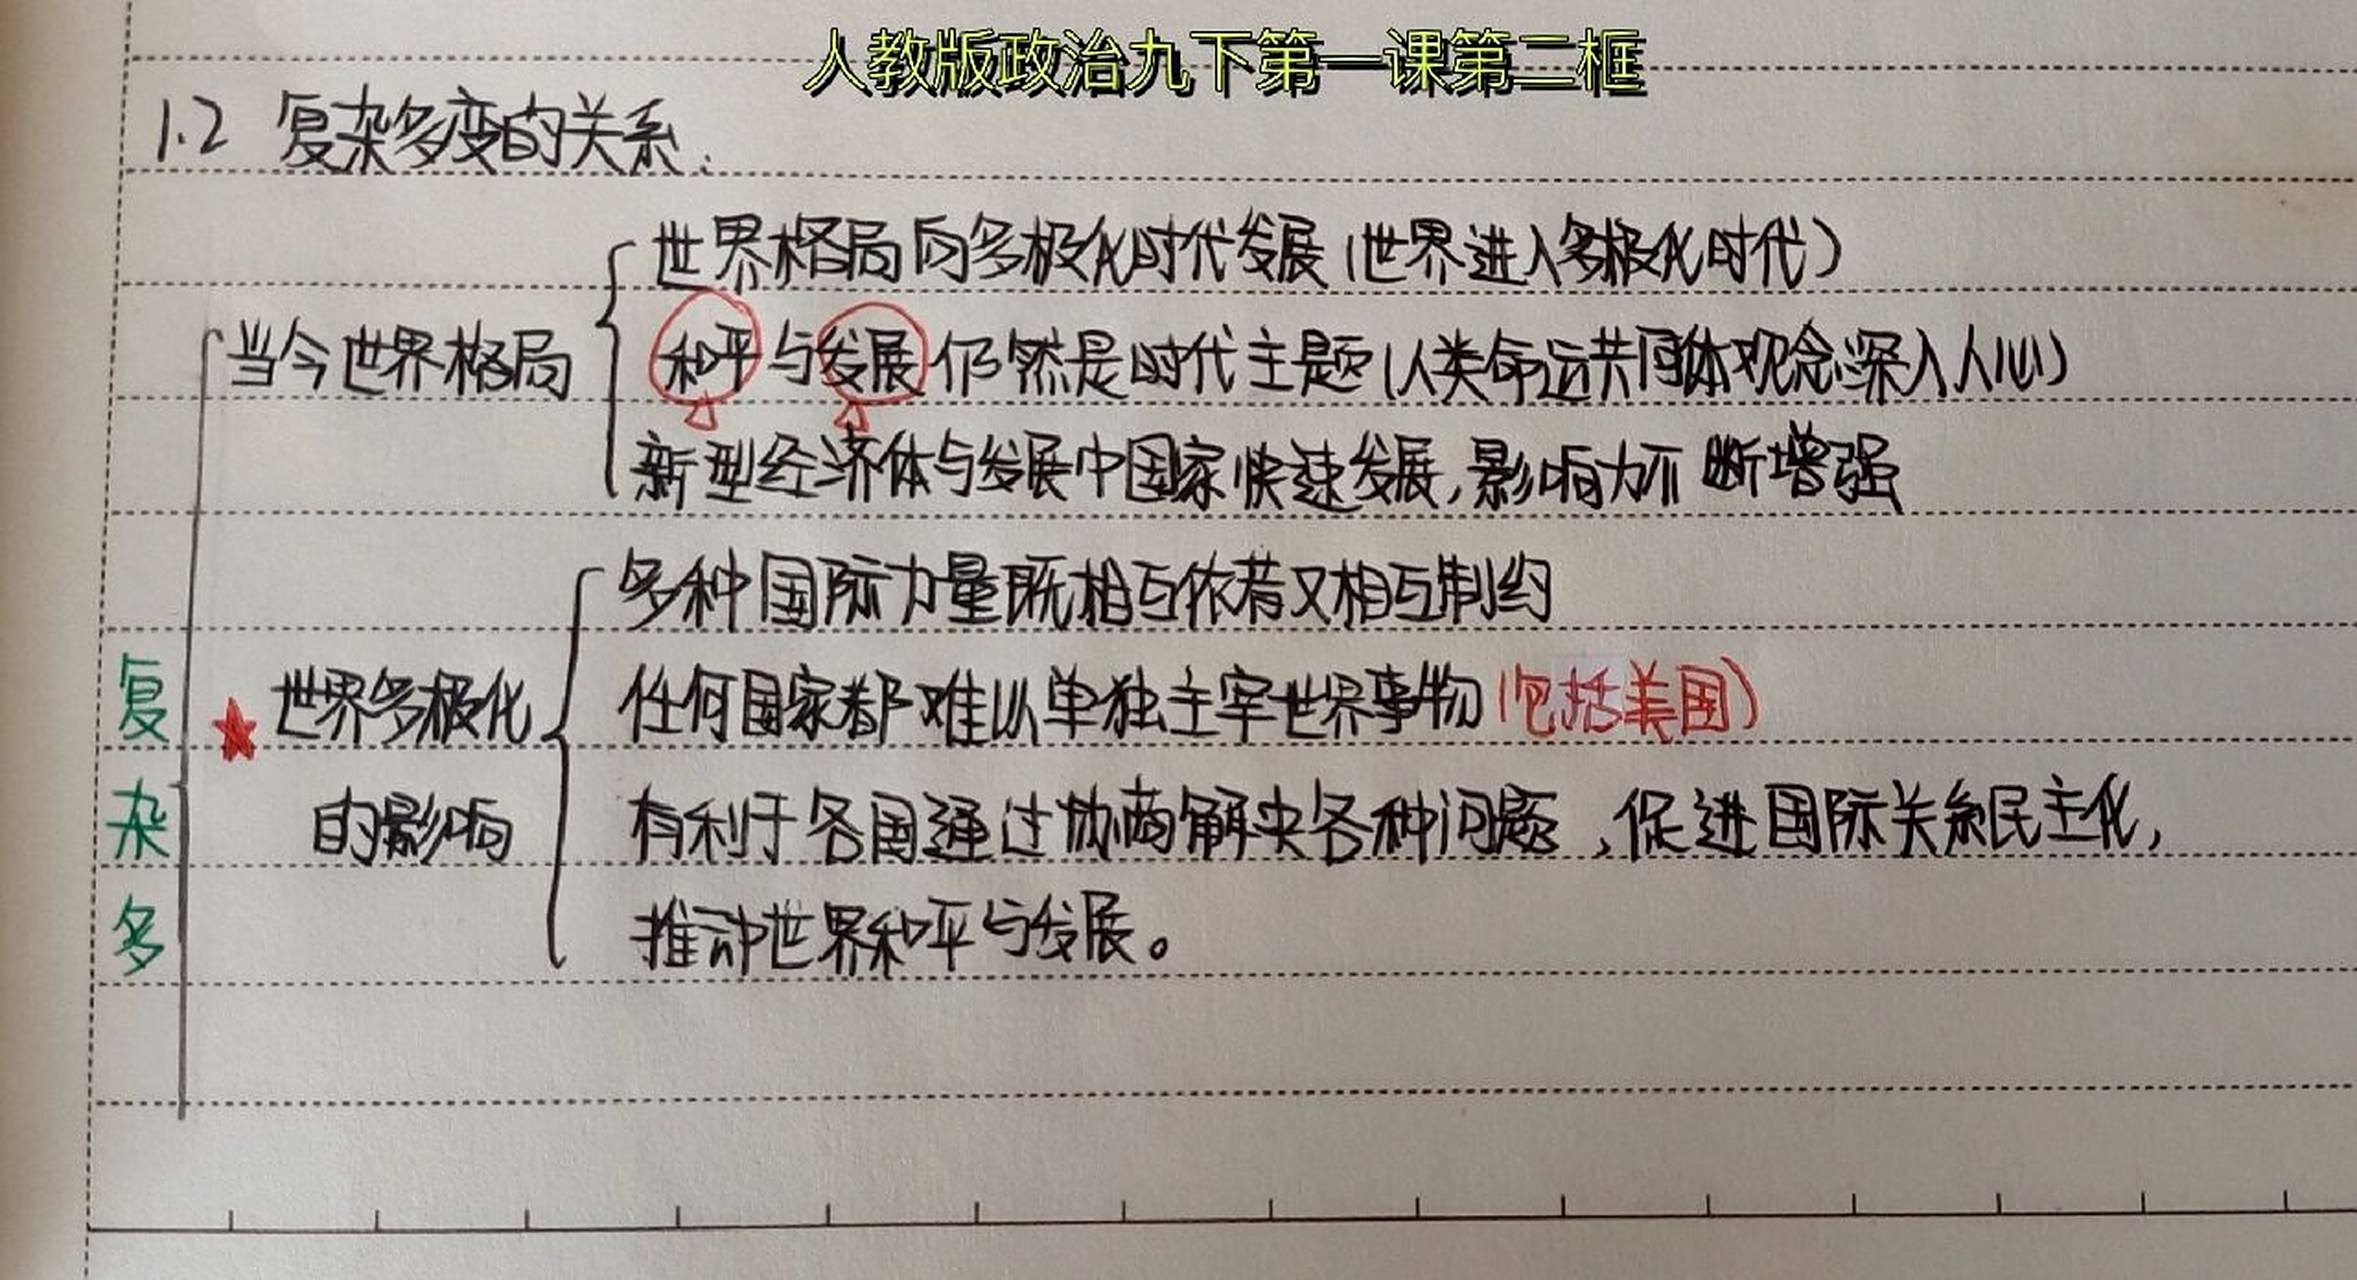 人教版政治九下第一课第二框
1.2 复杂多变的关系.
世界格局向多极化时代发展(世界进入多极化时代)
当今世界格局
和平与发展仍然是时代主题(人类命运共同体观念深入人心)
新型经济体与发展中国家快速发展,影响力不断增强
多种国际力量既相互依若又相互制约
复
★世界多极化
任何国家都难以单独主宰世界事物(包括美国)
杂
的影响
有利于各国通过协商解决各种问题,促进国际关系民主化,
多
推动世界和平与发展。